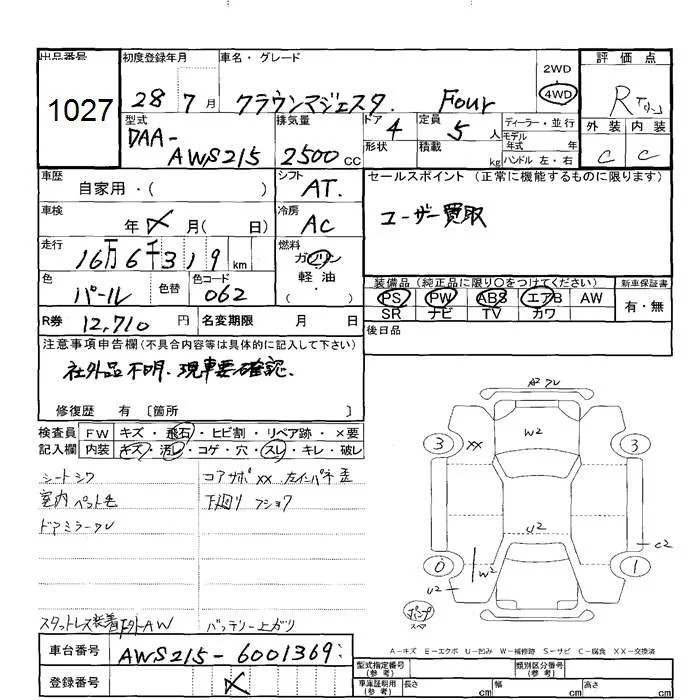 出品番号
1027
初度登録年月
28 7月
車名・グレード
クラウンマジェスタ. Four
2WD
4WD
評価点
R
外装 内装
C C
型式
DAA-
AWS215
排気量
2500cc
ドア
4
形状
定員
5人
積載
kg
ディーラー・並行
モデル
年式 年
ハンドル 左・右
車歴
自家用・( )
シフト
AT.
セールスポイント(正常に機能するものに限ります)
ユーザー買取
車検
年 月( 日)
冷房
AC
走行
16万6千319km
燃料
ガソリン
軽・油
( )
色
パール
色替
色コード
062
装備品(純正品に限り〇をつけてください)
PS PW ABS エアB AW
SR ナビ TV カワ
新車保証書
有・無
R券 12,710円
名変期限 月 日
後日品
注意事項申告欄(不具合内容等は具体的に記入して下さい)
社外品不明. 現車要確認.
修復歴 有〔箇所 〕
検査員 FW キズ・飛石・ヒビ割・リペア跡・×要
記入欄 内装 キズ・汚レ・コゲ・穴・スレ・キレ・破レ
シートシワ
室内ペット毛
ドアミラークレ
コアサポXX 左インパネ歪
下廻りフショク
スタットレス装着 社外AW
バッテリー上ガリ
A2 クレ
W2
3
XX
3
U2
C2
0
W2
U2
1
A-キズ E-エクボ U-凹み W-補修跡 S-サビ C-腐食 XX-交換済
車台番号 AWS215-6001369
登録番号
型式指定番号 類別区分番号
(参考) (参考)
車庫証明用 長さ cm 幅 cm 高さ cm
(参考)